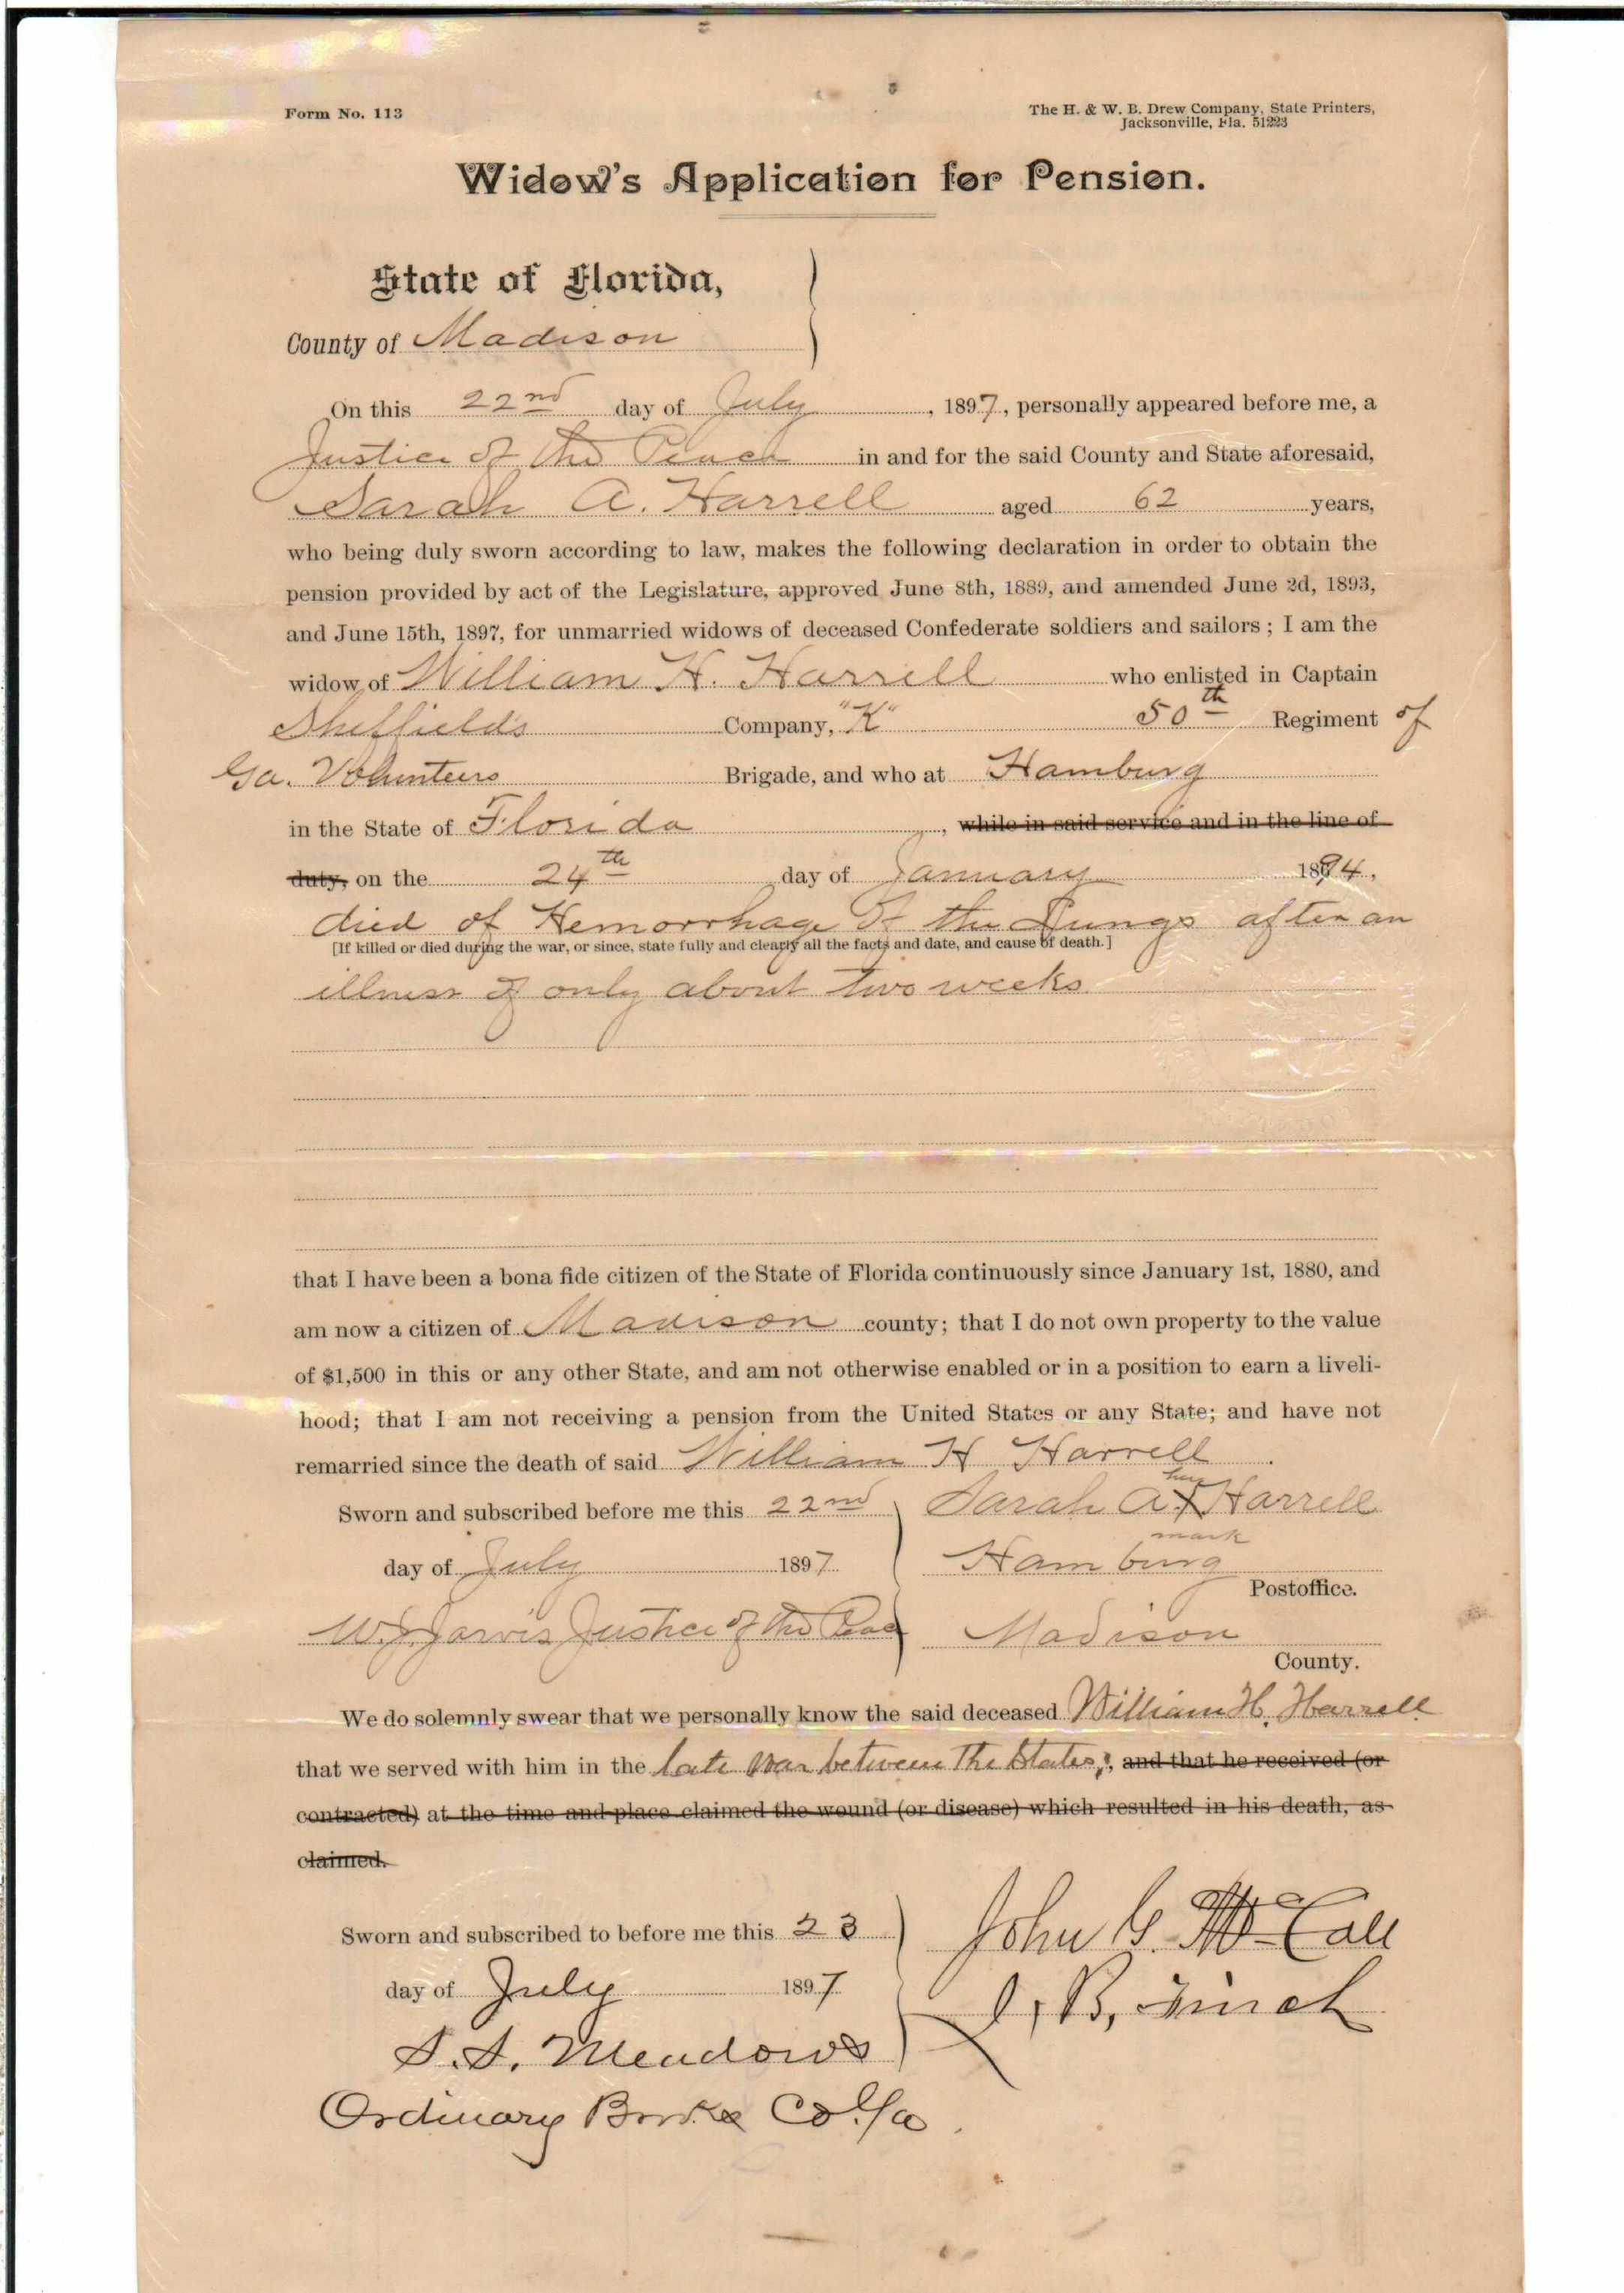 Form No. 113
The H. & W. B. Drew Company, State Printers,
Jacksonville, Fla. 51223
Widow's Application for Pension.
State of Florida,
County of Madison
On this 22nd day of July, 1897, personally appeared before me, a
Justice of the Peace in and for the said County and State aforesaid,
Sarah A. Harrell aged 62 years,
who being duly sworn according to law, makes the following declaration in order to obtain the
pension provided by act of the Legislature, approved June 8th, 1889, and amended June 2d, 1893,
and June 15th, 1897, for unmarried widows of deceased Confederate soldiers and sailors; I am the
widow of William H. Harrell who enlisted in Captain
Sheffields Company, "K" 50th Regiment of
Ga. Volunteers Brigade, and who at Hamburg
in the State of Florida, while in said service and in the line of
duty, on the 24th day of January 1894,
died of Hemorrhage of the Lungs after an
[If killed or died during the war, or since, state fully and clearly all the facts and date, and cause of death.]
illness of only about two weeks
that I have been a bona fide citizen of the State of Florida continuously since January 1st, 1880, and
am now a citizen of Madison county; that I do not own property to the value
of $1,500 in this or any other State, and am not otherwise enabled or in a position to earn a liveli-
hood; that I am not receiving a pension from the United States or any State; and have not
remarried since the death of said William H Harrell.
Sworn and subscribed before me this 22nd
day of July 1897
W. J. Jarvis Justice of the Peace
Sarah A. her X mark Harrell
Hamburg
Postoffice.
Madison
County.
We do solemnly swear that we personally know the said deceased William H. Harrell
that we served with him in the late War between The States;, and that he received (or
contracted) at the time and place claimed the wound (or disease) which resulted in his death, as
claimed.
Sworn and subscribed to before me this 23
day of July 1897
S. S. Meadows
Ordinary Brooks Co Ga.
John G. McCall
J. B. Finch